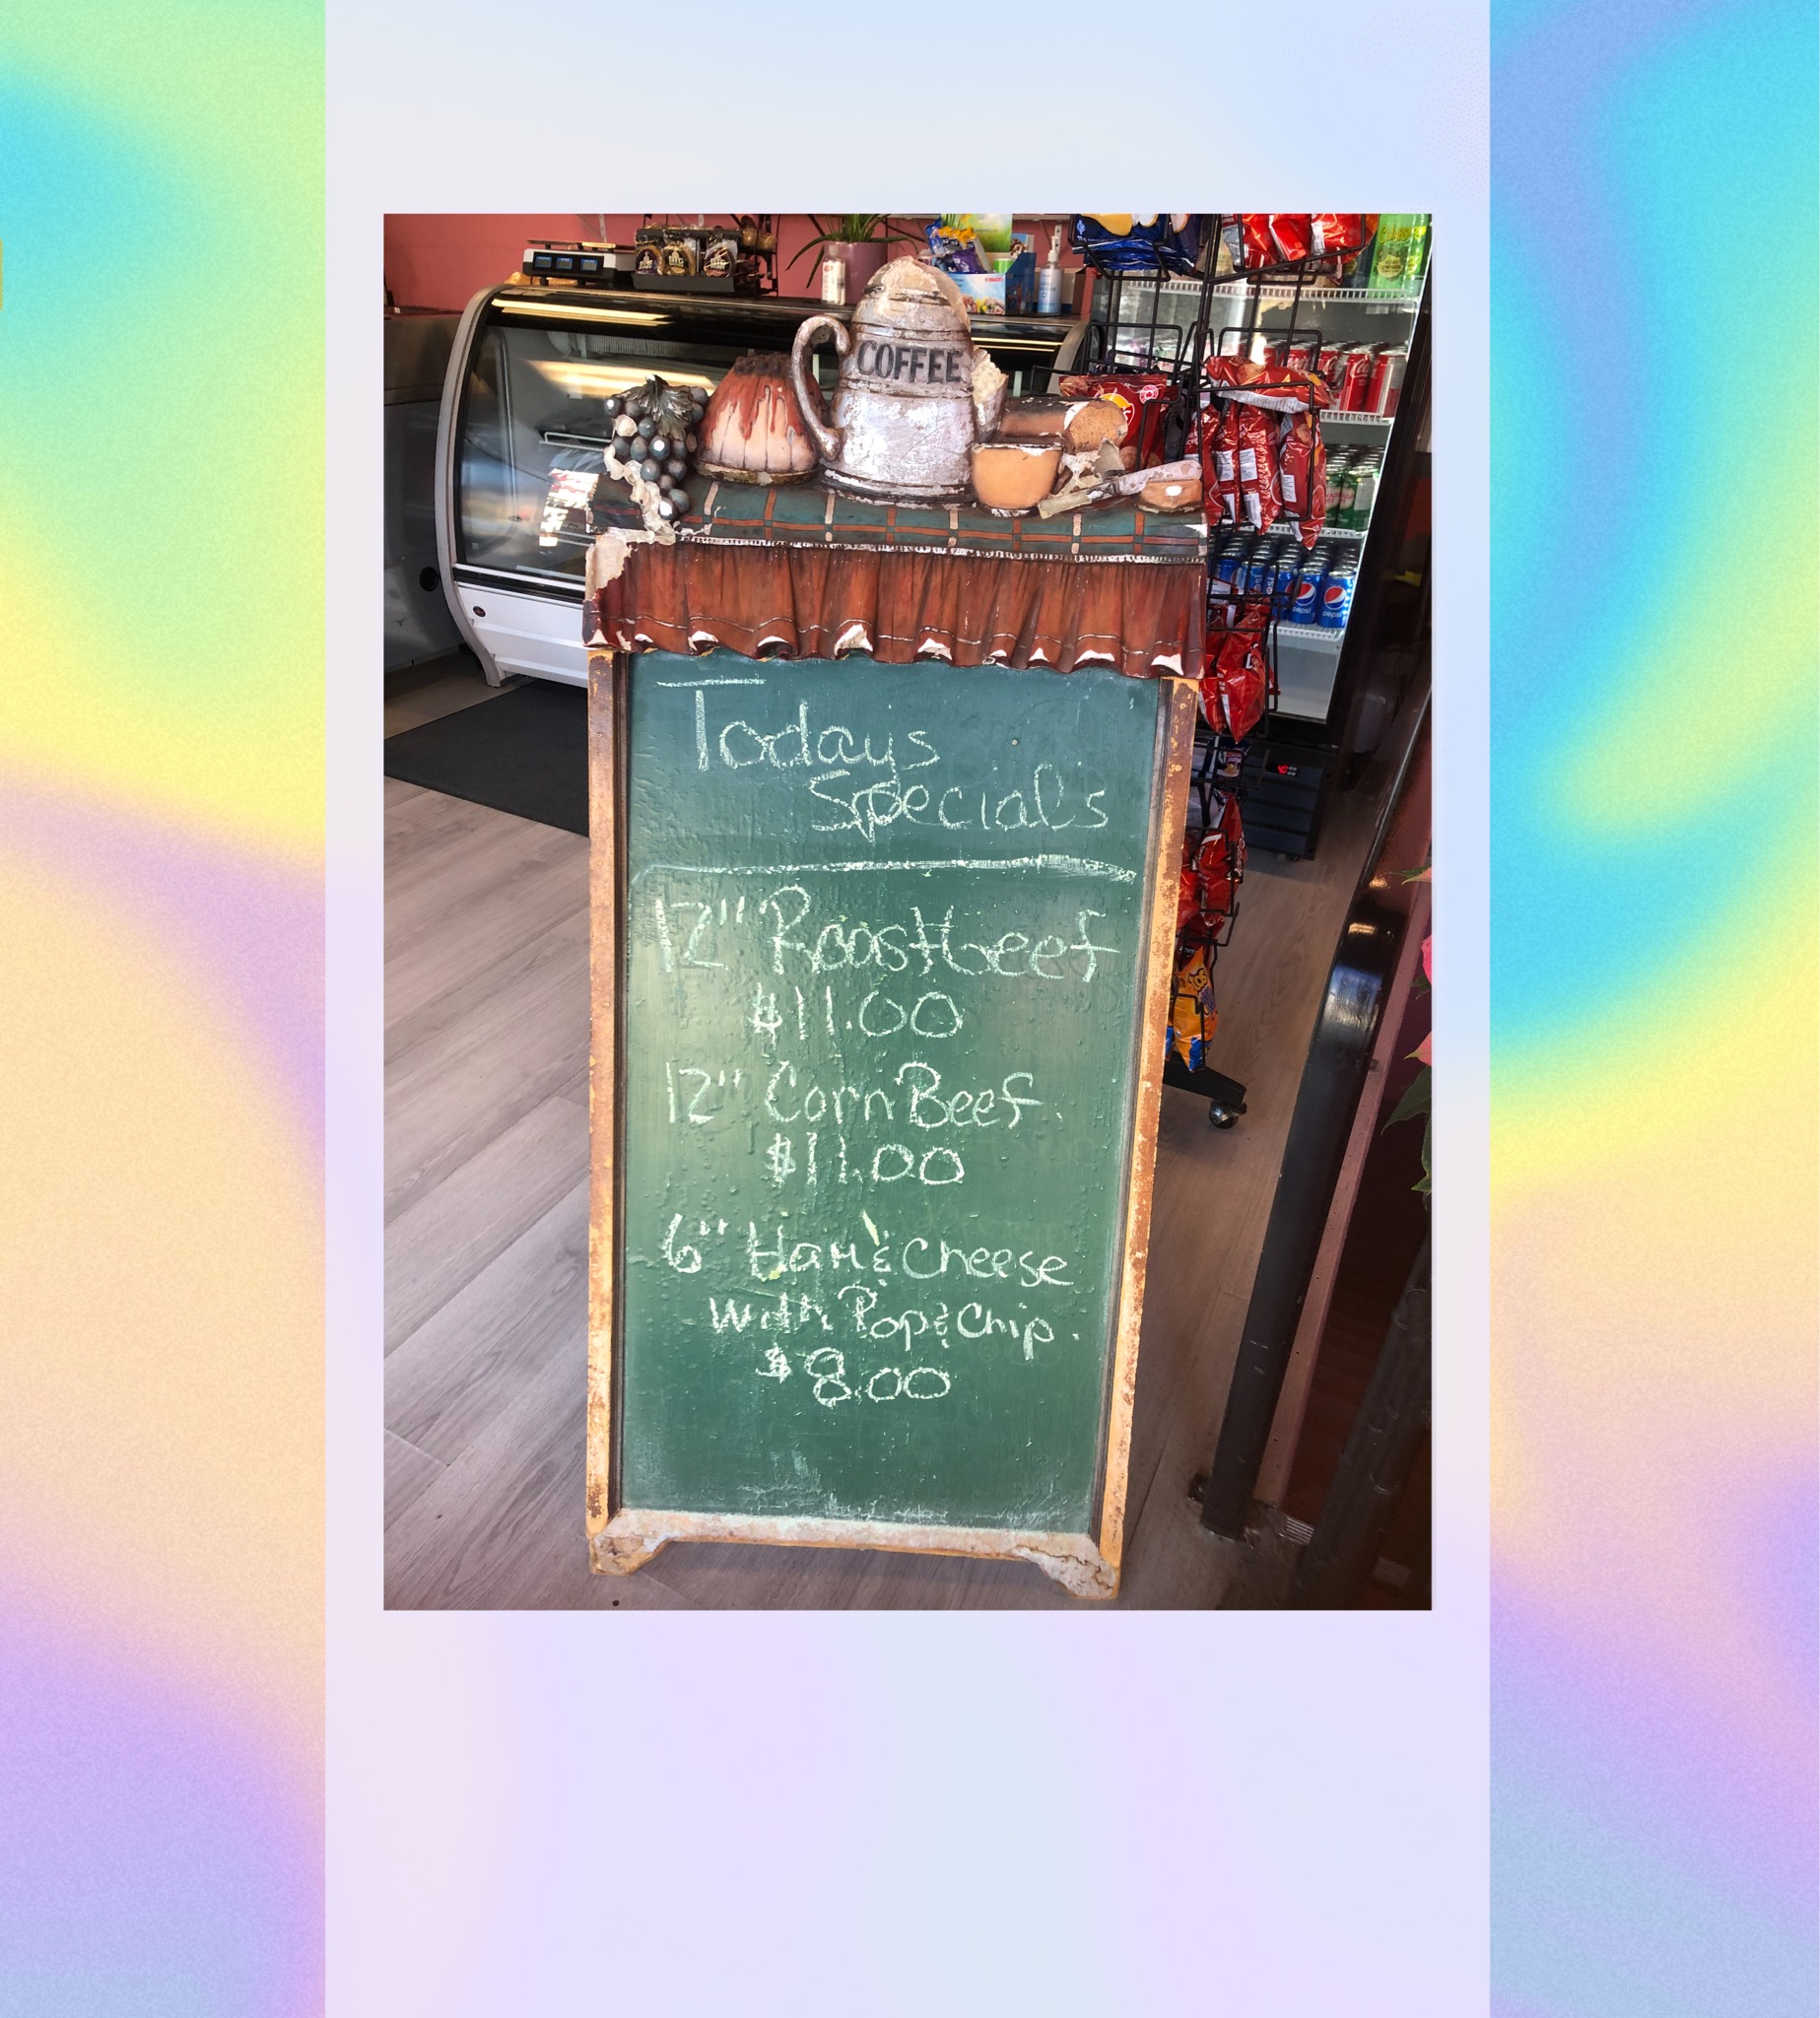 COFFEE
Todays
Specials
12" Roastbeef
$11.00
12" Corn Beef.
$11.00
6" Ham & Cheese
with Pop & Chip.
$8.00
pepsi
pepsi